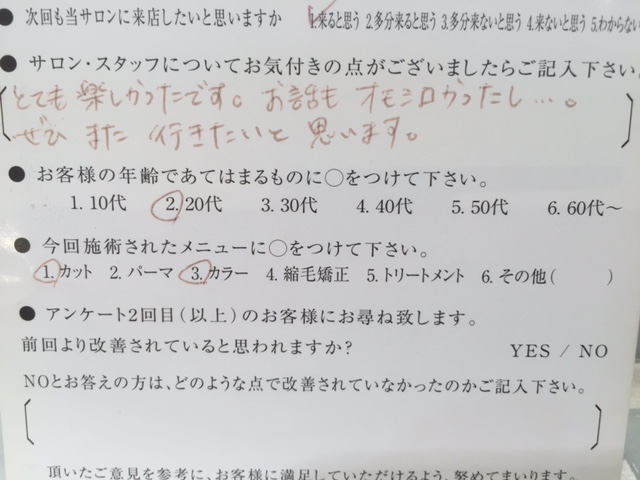 ● 次回も当サロンに来店したいと思いますか 1.来ると思う 2.多分来ると思う 3.多分来ないと思う 4.来ないと思う 5.わからない
● サロン・スタッフについてお気付きの点がございましたらご記入下さい。
とても楽しかったです。お話もオモシロかったし…。
ぜひまた行きたいと思います。
● お客様の年齢であてはまるものに○をつけて下さい。
1. 10代 2. 20代 3. 30代 4. 40代 5. 50代 6. 60代～
● 今回施術されたメニューに○をつけて下さい。
1. カット 2. パーマ 3. カラー 4. 縮毛矯正 5. トリートメント 6. その他( )
● アンケート2回目(以上)のお客様にお尋ね致します。
前回より改善されていると思われますか? YES / NO
NOとお答えの方は、どのような点で改善されていなかったのかご記入下さい。
頂いたご意見を参考に、お客様に満足していただけるよう、努めてまいります。